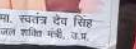 मा. स्वतंत्र देव सिंह
जल शक्ति मंत्री, उ.प्र.